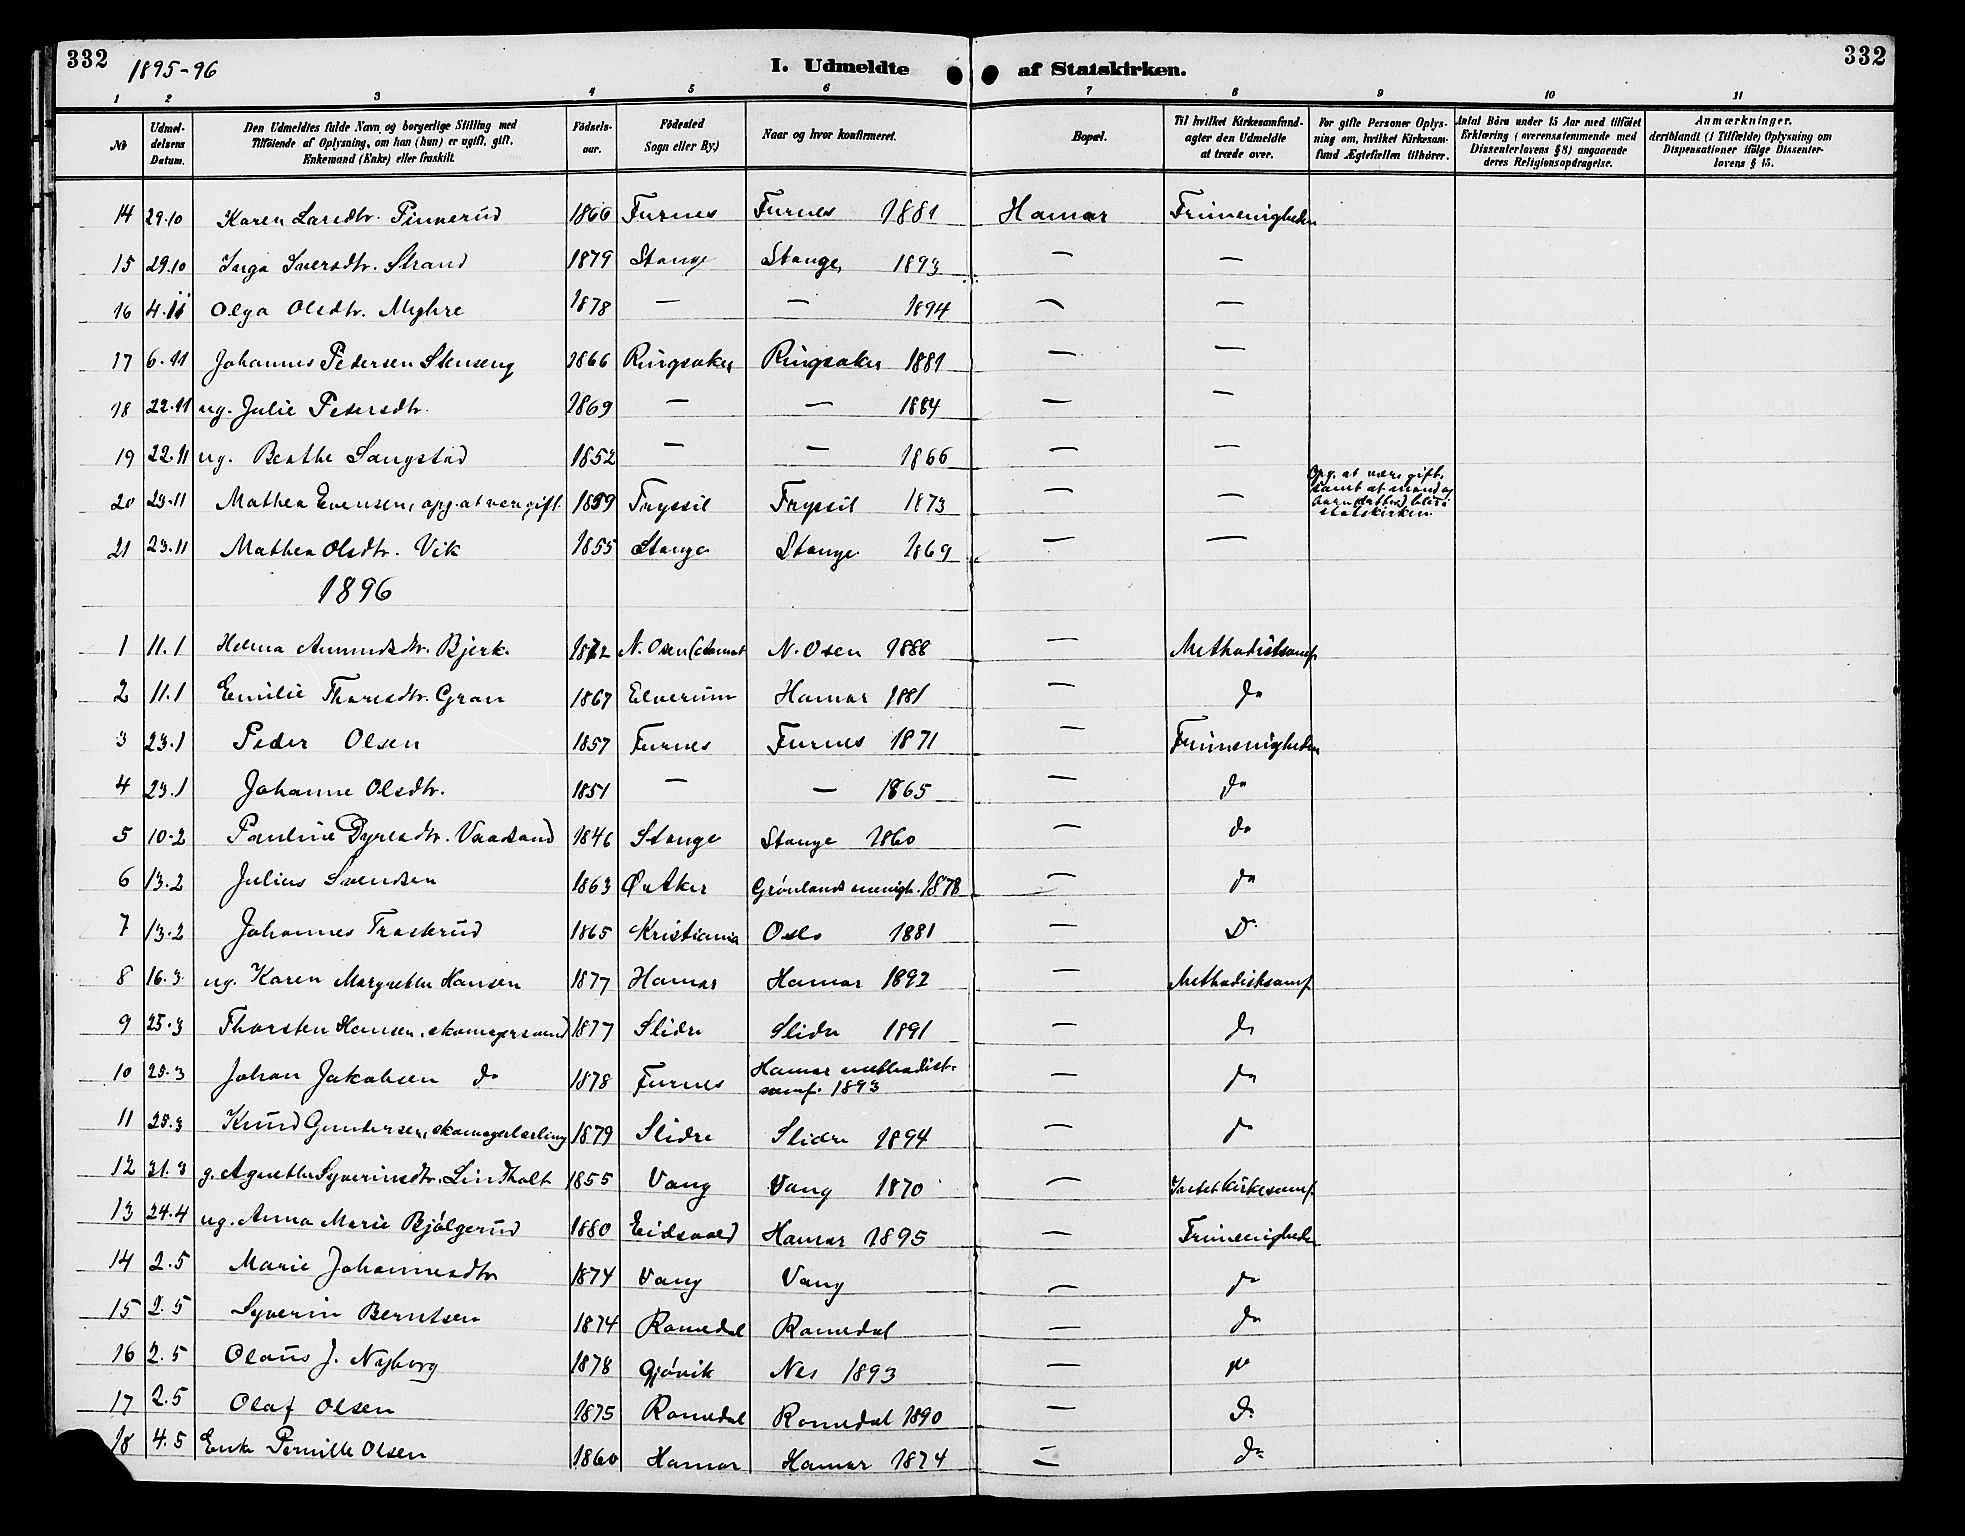 332 1895-96 I. Udmeldte af Statskirken. 332
1 2 3 4 5 6 7 8 9 10 11
No Udmeldelsens Datum. Den Udmeldtes fulde Navn og borgerlige Stilling med Tilføiende af Oplysning, om han (hun) er ugift, gift, Enkemand (Enke) eller fraskilt. Fødselsaar. Fødested Sogn eller By) Naar og hvor konfirmeret. Bopæl. Til hvilket Kirkesamfund agter den Udmeldte at træde over. For gifte Personer Oplysning om, hvilket Kirkesamfund Ægtefællen tilhører. Antal Børn under 15 Aar med tilføiet Erklæring (overensstemmende med Dissenterlovens § 8) angaaende deres Religionsopdragelse. Anmærkninger, deriblandt (i Tilfælde) Oplysning om Dispensationer ifølge Dissenterlovens § 15.
14 29.10 Karen Larsdtr. Pinnerud 1866 Furnes Furnes 1881 Hamar Frimenigheden
15 29.10 Inga Iversdtr. Strand 1879 Stange Stange 1893 — —
16 4.11 Olga Olsdtr. Myhre 1878 — — 1894 — —
17 6.11 Johannes Pedersen Stenseng 1866 Ringsaker Ringsaker 1881 — —
18 22.11 ug. Julie Pedersdtr. 1869 — — 1884 — —
19 22.11 ug. Berthe Sangstad 1852 — — 1866 — —
20 23.11 Mathea Evensen, opg. at være gift 1859 Tryssil Tryssil 1873 — — Opg. at være gift, samt at mand og børn statskirken.
21 23.11 Mathea Olsdtr. Vik 1855 Stange Stange 1869 — —
1896
1 11.1 Helma Amundsdtr. Bjerk. 1872 N. Osen N. Osen 1888 — Methodistsamf.
2 11.1 Emilie Thorsdtr. Gran 1867 Elverum Hamar 1881 — do
3 23.1 Peder Olsen 1857 Furnes Furnes 1871 — Frimenigheden
4 23.1 Johanne Olsdtr. 1851 — — 1865 — do
5 10.2 Pauline Dyresdtr. 1846 Stange Stange 1860 — do
6 13.2 Julius Svendsen 1863 Ø. Aker Grønlands menigh. 1878 — do
7 13.2 Johannes Trosterud 1865 Kristiania Oslo 1881 — D.
8 16.3 ug. Karen Margrethe Hansen 1877 Hamar Hamar 1892 — Methodistsamf.
9 25.3 Thorsten Hansen, skomagersvend 1877 Slidre Slidre 1891 — do
10 25.3 Johan Jakobsen do 1878 Furnes Hamar methodist- samf. 1893 — do
11 25.3 Knud Gundersen, skomagerlærling 1879 Slidre Slidre 1894 — do
12 31.3 g. Agnethe Syverinsdtr. Lindholt 1855 Vang Vang 1870 — Intet Kirkesamf.
13 24.4 ug. Anna Marie Bjølgerud 1880 Eidsvold Hamar 1895 — Frimenigheden
14 2.5 Marie Johannesdtr 1874 Vang Vang — do
15 2.5 Syverin Berntsen 1874 Romedal Romedal — do
16 2.5 Olaus J. Nyborg 1878 Gjøvik Nes 1893 — do
17 2.5 Olaf Olsen 1875 Romedal Romedal 1890 — do
18 4.5 Enke Pernille Olsen 1860 Hamar Hamar 1874 — do